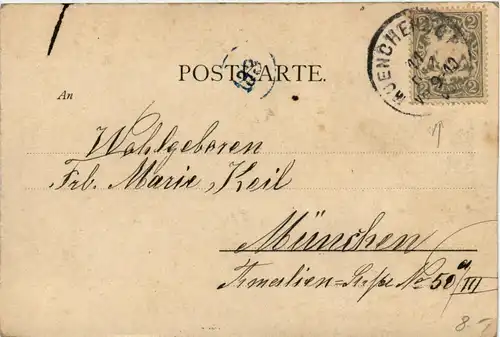 MUENCHEN
2 2
POSTKARTE.
An
Wohlgeboren
Frl. Marie Keil
München
Amalien-Straße No 50a/III
8.-